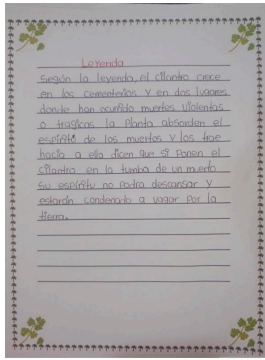 Leyenda
según la leyenda, el cilantro crece
en los cementerios y en dos lugares
donde han ocurrido muertes violentas
o tragicas la planta absorden el
espíritu de los muertos y los trae
hacia a ella dicen que si ponen el
cilantro en la tumba de un muerto
su espíritu no podra descansar y
estarán condenado a vagar por la
tierra.